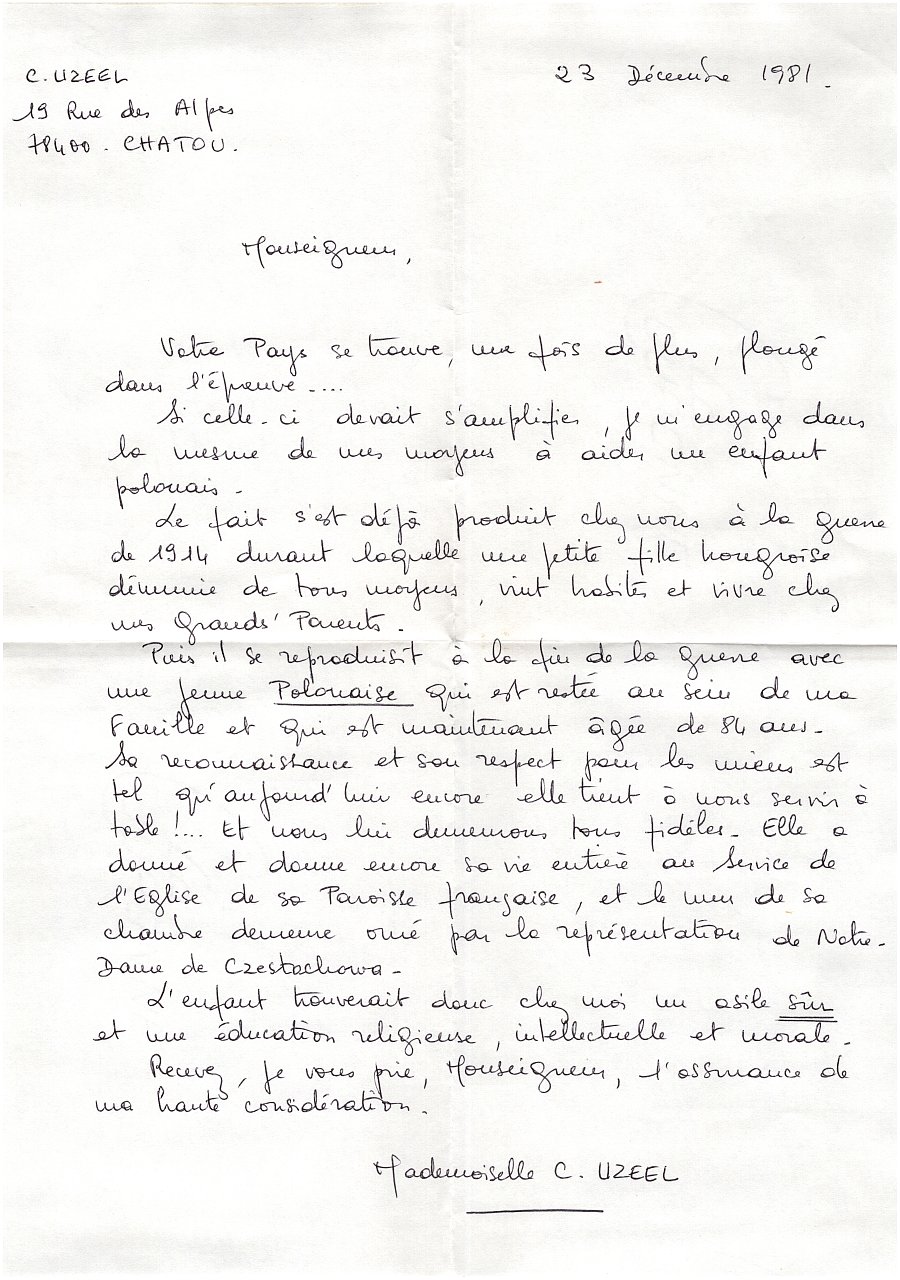 C. UZEEL
19 Rue des Alpes
78400 - CHATOU.
23 Décembre 1981.
Monseigneur,
Votre Pays se trouve, une fois de plus, plongé
dans l'épreuve....
Si celle-ci devait s'amplifier, je m'engage dans
la mesme de mes moyens à aider un enfant
polonais.
Le fait s'est déjà produit chez nous à la guerre
de 1914 durant laquelle une petite fille hongroise
démunie de tous moyens, vint habiter et vivre chez
mes Grands' Parents.
Puis il se reproduisit à la fin de la guerre avec
une jeune Polonaise qui est restée au sein de ma
Famille et qui est maintenant âgée de 84 ans.
Sa reconnaissance et son respect pour les miens est
tel qu'aujourd'hui encore elle tient à nous servir à
table !... Et nous lui demeurons tous fidèles. Elle a
donné et donne encore sa vie entière au Service de
l'Eglise de sa Paroisse française, et le mur de sa
chambre demeure orné par la représentation de Notre-
Dame de Czestochowa.
L'enfant trouverait donc chez moi un asile sûr
et une éducation religieuse, intellectuelle et morale.
Recevez, je vous prie, Monseigneur, l'assurance de
ma haute considération.
Mademoiselle C. UZEEL